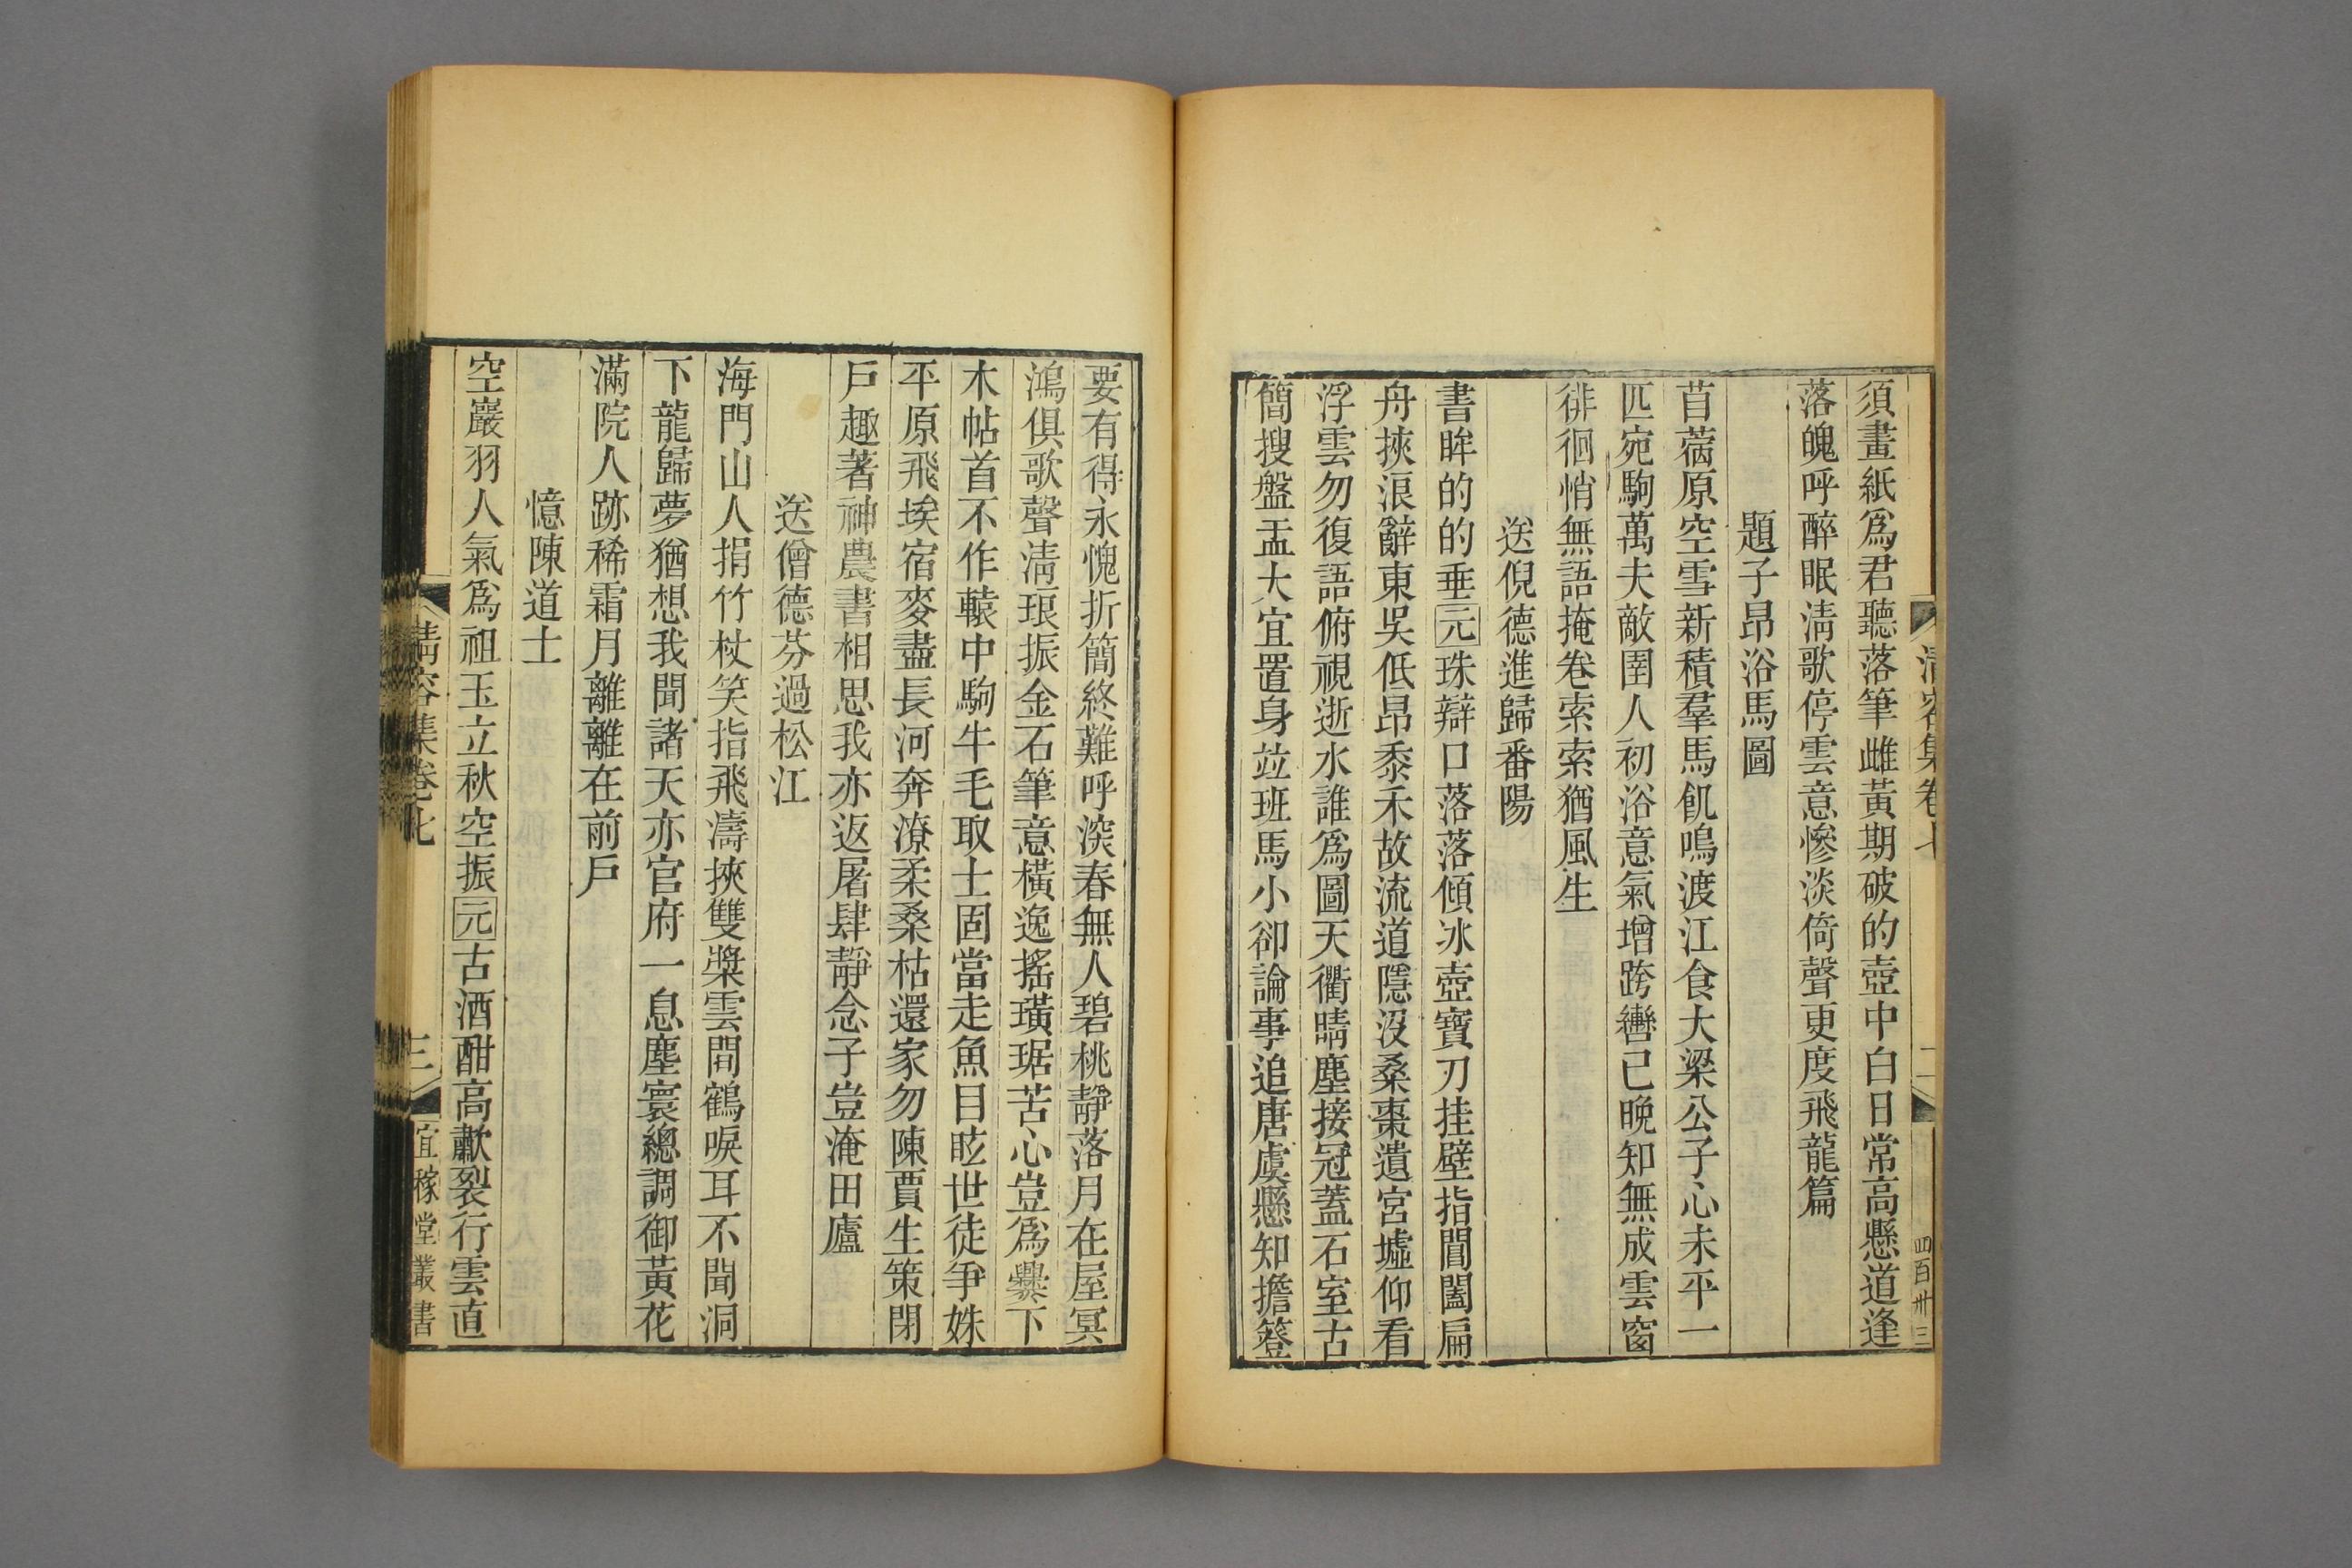 須畫紙爲君聽落筆雌黃期破的壺中白日常高懸道逢
落魄呼醉眠清歌停雲意慘淡倚聲更度飛龍篇
題子昂浴馬圖
苜蓿原空雪新積羣馬飢鳴渡江食大梁公子心未平一
匹宛駒萬夫敵圉人初浴意氣增跨轡已晚知無成雲窗
徘徊悄無語掩卷索索猶風生
送倪德進歸番陽
書眸的的垂元珠辯口落落傾冰壺寶刀挂壁指閶闔扁
舟挾浪辭東吳低昂黍禾故流道隱沒桑棗遺宮墟仰看
浮雲勿復語俯視逝水誰爲圖天衢晴塵接冠蓋石室古
簡搜盤盂大宜置身竝班馬小卻論事追唐虞懸知擔簦
要有得永愧折簡終難呼深春無人碧桃靜落月在屋冥
鴻俱歌聲清琅振金石筆意橫逸搖璜琚苦心豈爲爨下
木帖首不作轅中駒牛毛取士固當走魚目眩世徒爭姝
平原飛埃宿麥盡長河奔潦柔桑枯還家勿陳賈生策閉
戶趣著神農書相思我亦返屠肆靜念子豈淹田廬
送僧德芬過松江
海門山人捐竹杖笑指飛濤挾雙槳雲間鶴唳耳不聞洞
下龍歸夢猶想我聞諸天亦官府一息塵寰總調御黃花
滿院人跡稀霜月離離在前戶
憶陳道士
空巖羽人氣爲祖玉立秋空振元古酒酣高歗裂行雲直
清容集卷七
三
宜稼堂叢書
清容集卷七
二
四百卅三